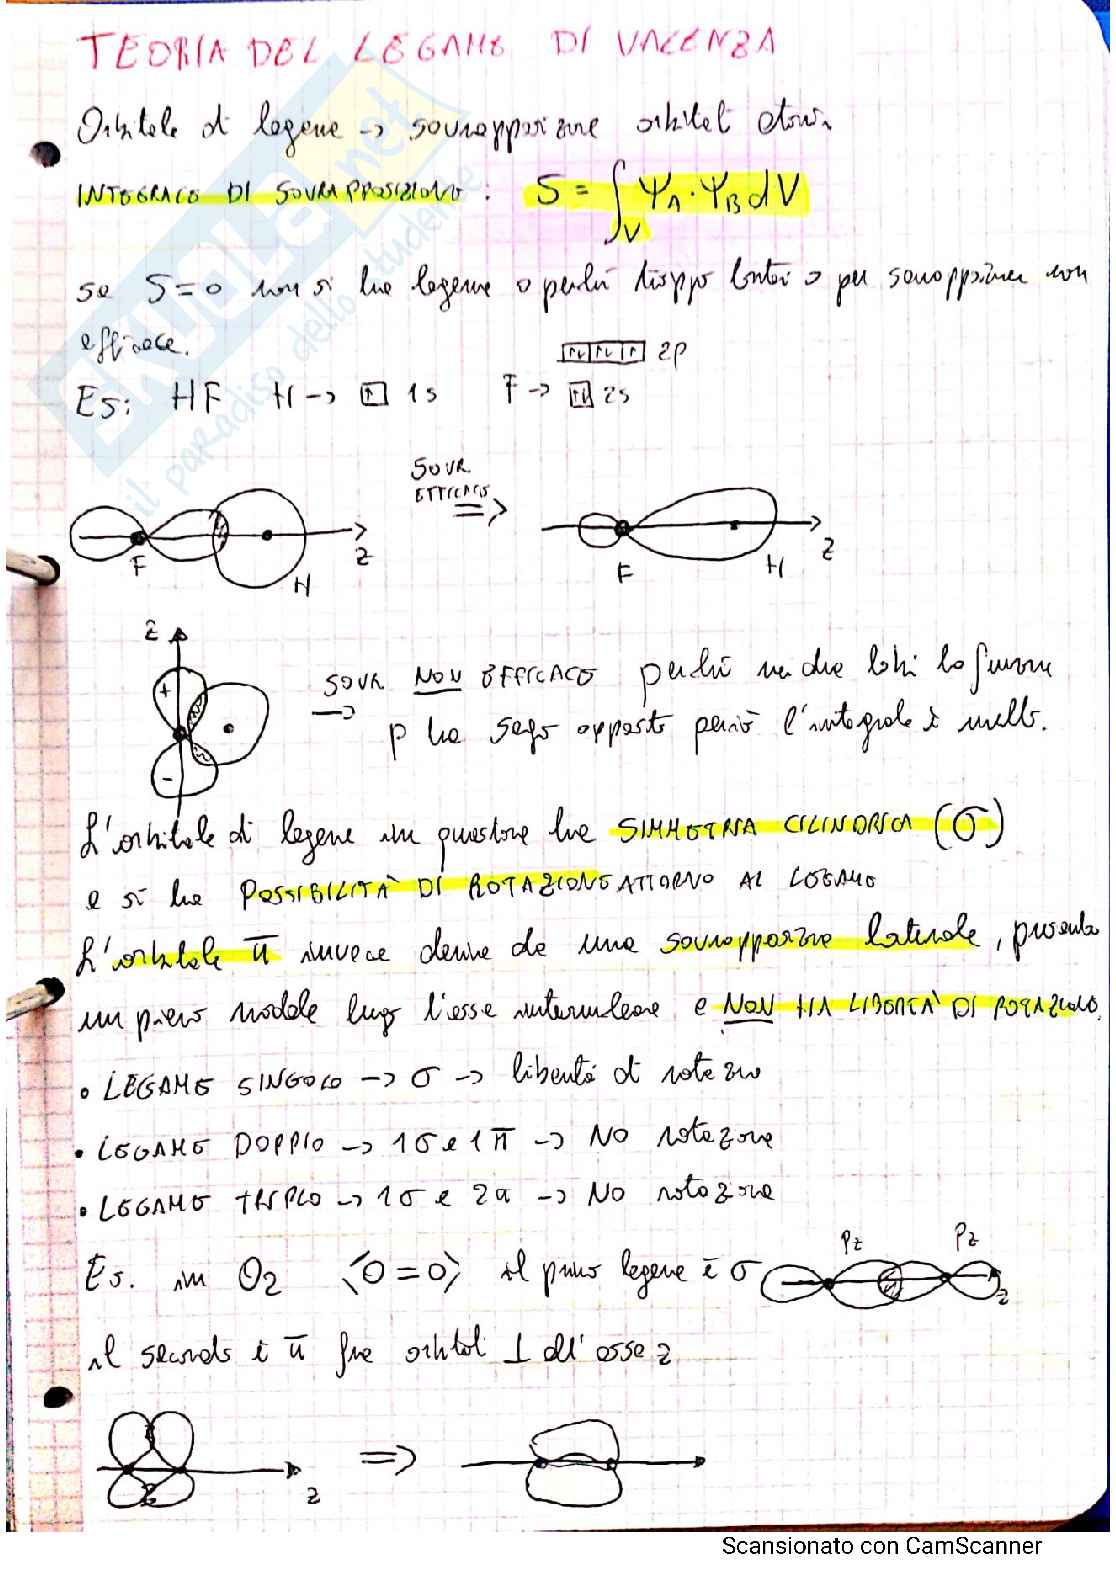 TEORIA DEL LEGAME DI VALENZA
Orbitale di legame -> sovrapposizione orbitali atomici
INTEGRALE DI SOVRAPPOSIZIONE : S = ∫V ΨA · ΨB dV
se S=0 non si ha legame o perché troppo lontani o per sovrapposizione non
efficace.
2p
Es: HF H -> 1s F -> 2s
SOVR.
EFFICACE
=>
F H z
F H z
z
+
-
SOVR NON EFFICACE perché nei due lobi la funzione
->
p ha segno opposto perciò l'integrale è nullo.
L'orbitale di legame in questione ha SIMMETRIA CILINDRICA (σ)
e si ha POSSIBILITÀ DI ROTAZIONE ATTORNO AL LEGAME
L'orbitale π invece deriva da una sovrapposizione laterale, presenta
un piano nodale lungo l'asse internucleare e NON HA LIBERTÀ DI ROTAZIONE.
• LEGAME SINGOLO -> σ -> libertà di rotazione
• LEGAME DOPPIO -> 1σ e 1π -> NO rotazione
• LEGAME TRIPLO -> 1σ e 2π -> NO rotazione
Pz Pz
Es. in O2 ⟨O=O⟩ il primo legame è σ
z
il secondo è π fra orbitali ⊥ all'asse z
=>
z
Scansionato con CamScanner
skuola.net
il paradiso dello studente